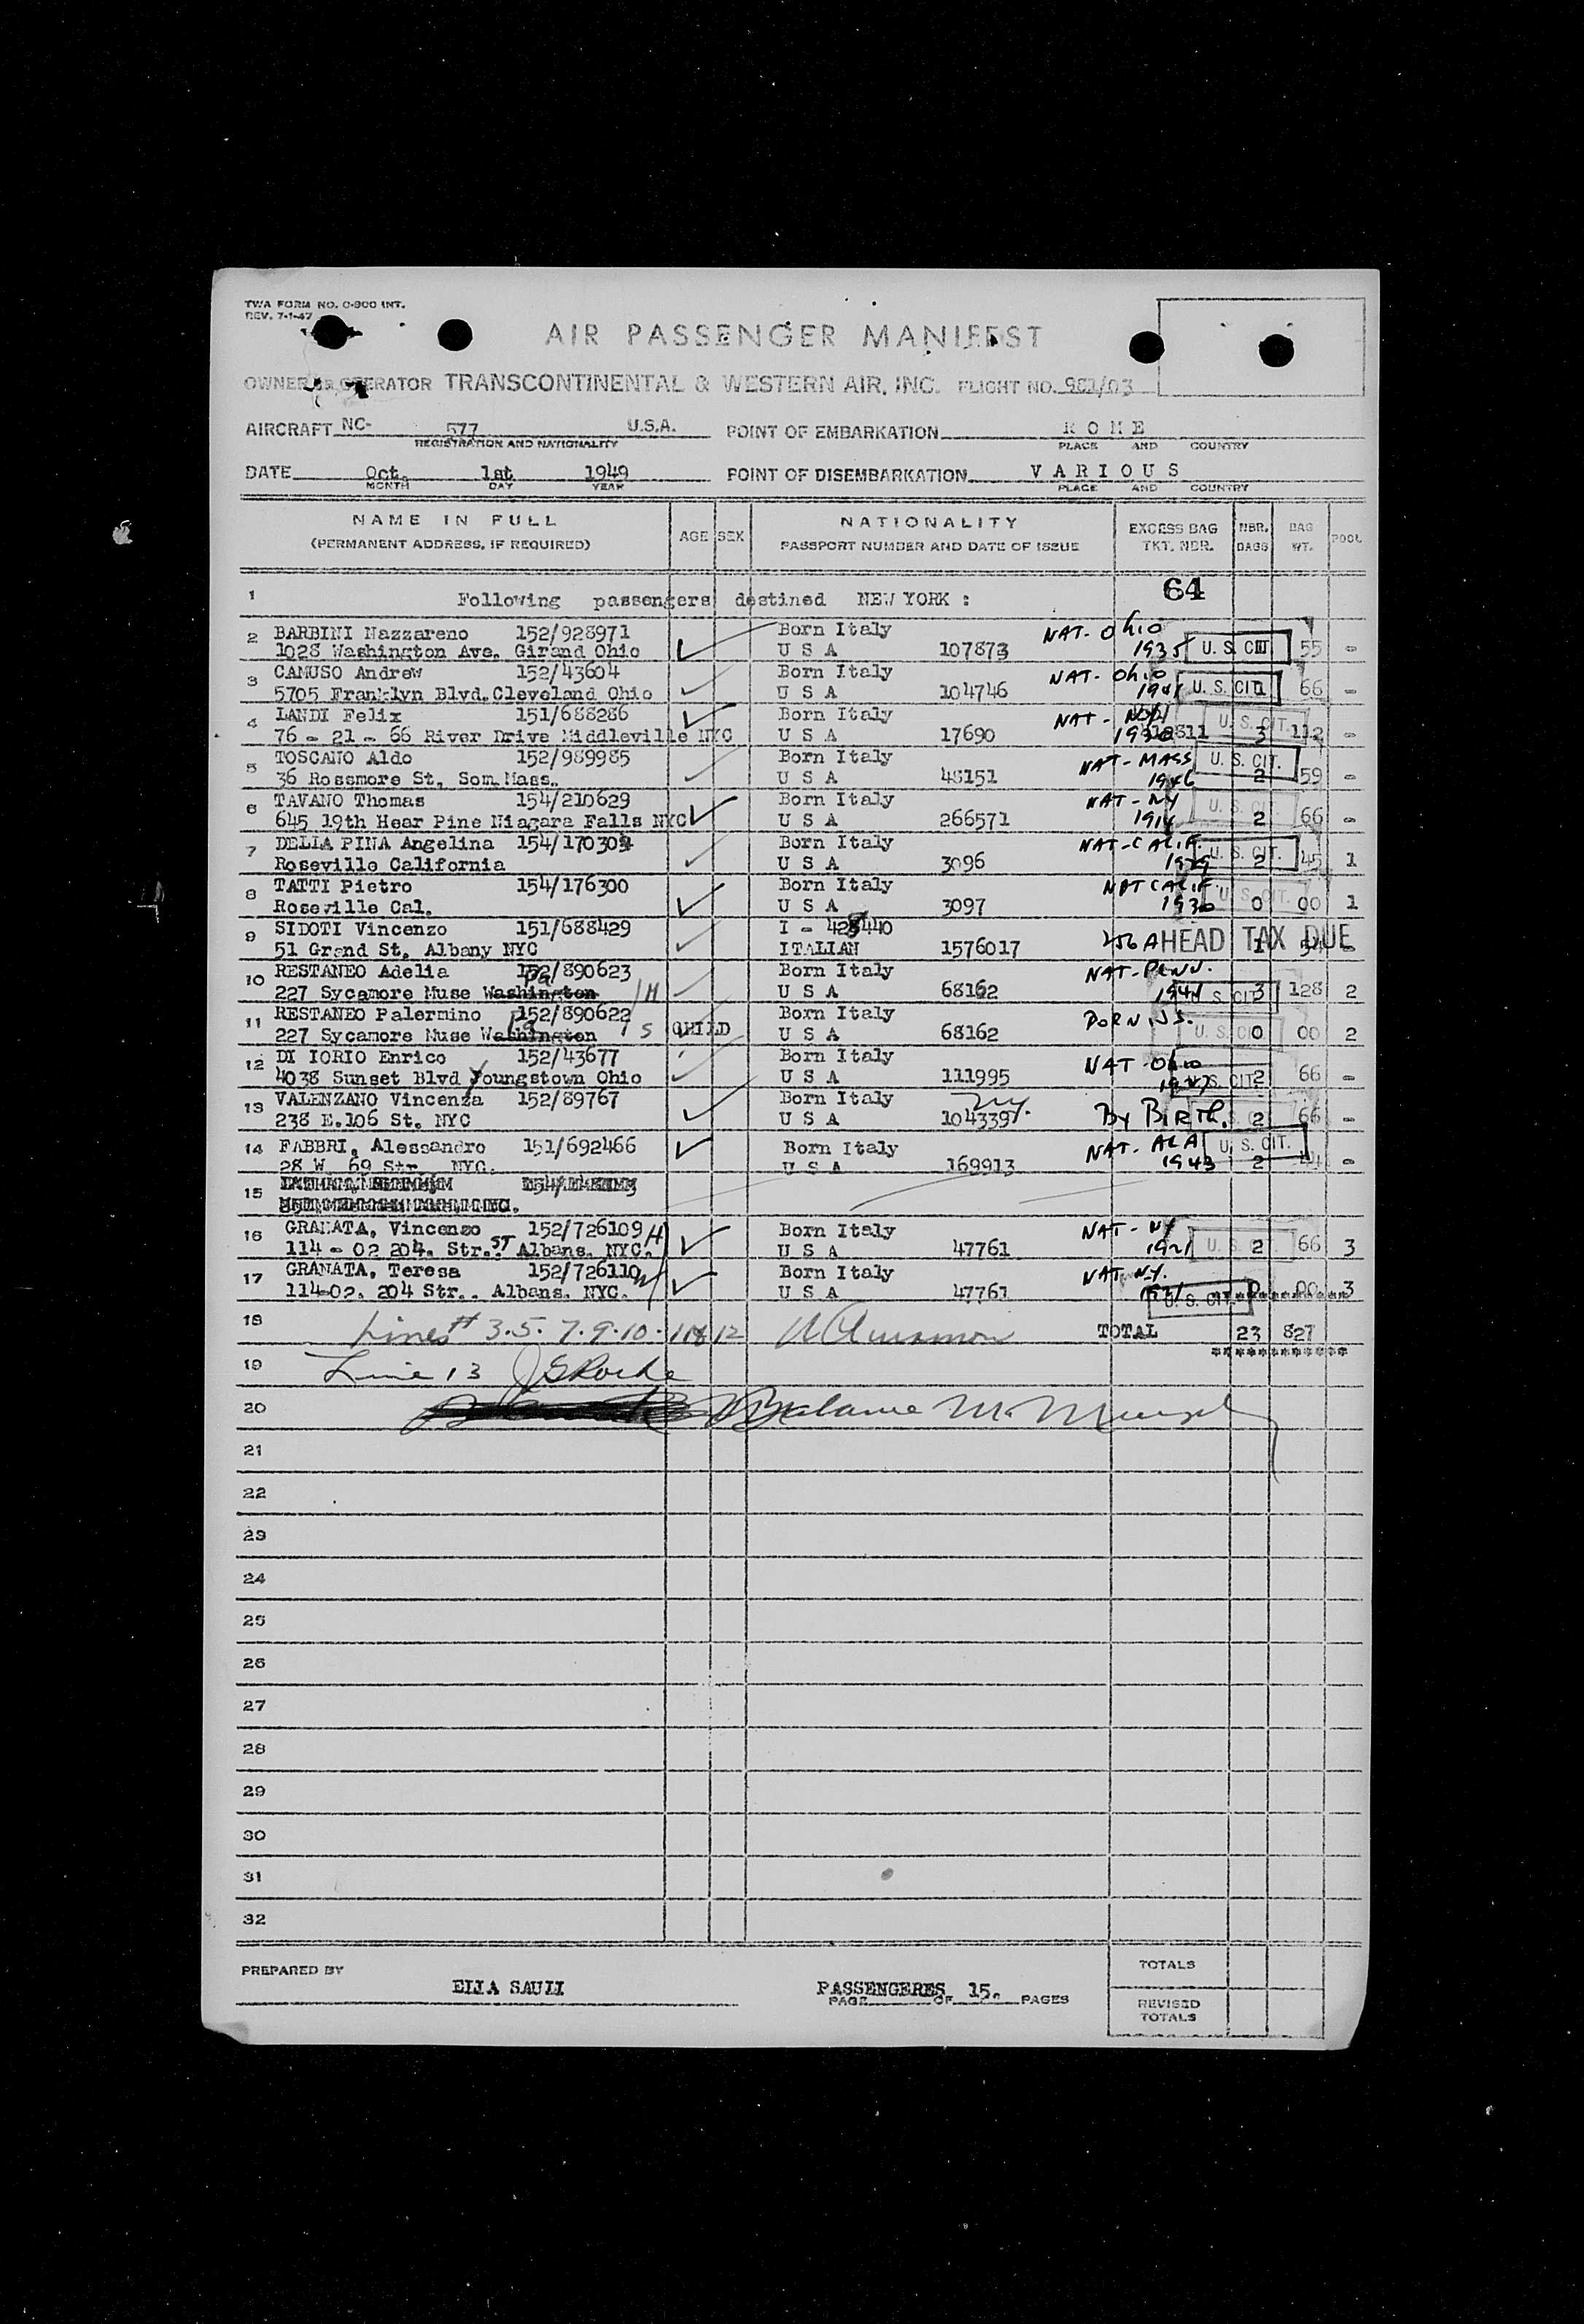 TWA FORM NO. 0-900 INT.
REV. 7-1-47
AIR PASSENGER MANIFEST
OWNER OR OPERATOR TRANSCONTINENTAL & WESTERN AIR, INC. FLIGHT NO. 981/03
AIRCRAFT NC- 577 U.S.A. POINT OF EMBARKATION R O M E
REGISTRATION AND NATIONALITY PLACE AND COUNTRY
DATE Oct. 1st 1949 POINT OF DISEMBARKATION V A R I O U S
MONTH DAY YEAR PLACE AND COUNTRY
NAME IN FULL NATIONALITY EXCESS BAG NBR. BAG
(PERMANENT ADDRESS, IF REQUIRED) AGE SEX PASSPORT NUMBER AND DATE OF ISSUE TKT. NBR. BAGS WT. POOL
1 Following passengers destined NEW YORK : 64
2 BARBINI Nazzareno 152/928971 Born Italy NAT- Ohio
1028 Washington Ave. Girand Ohio U S A 107873 1935 U. S. CIT. 55 -
3 CAMUSO Andrew 152/43604 Born Italy NAT- Ohio
5705 Franklyn Blvd. Cleveland Ohio U S A 104746 1941 U. S. CIT. 1 66 -
4 LANDI Felix 151/688286 Born Italy NAT - U. S. CIT.
76 - 21 - 66 River Drive Middleville NYC U S A 17690 3 112 -
5 TOSCANO Aldo 152/989985 Born Italy NAT - MASS U. S. CIT.
36 Rossmore St. Som. Mass. U S A 48151 1946 2 59 -
6 TAVANO Thomas 154/210629 Born Italy NAT - NY U. S. CIT.
645 19th Hear Pine Niagara Falls NYC U S A 266571 1914 2 66 -
7 DELLA PINA Angelina 154/170304 Born Italy NAT-CALIF. U. S. CIT.
Roseville California U S A 3096 1929 2 45 1
8 TATTI Pietro 154/176300 Born Italy NAT CALIF. U. S. CIT.
Roseville Cal. U S A 3097 1930 0 00 1
9 SIDOTI Vincenzo 151/688429 I - 428440
51 Grand St. Albany NYC ITALIAN 1576017 HEAD TAX DUE 1 54 -
10 RESTANEO Adelia 152/890623 Born Italy NAT-PENN.
227 Sycamore Muse Washington Pa H U S A 68162 1941 U. S. CIT. 3 128 2
11 RESTANEO Palermino 152/890622 Born Italy BORN U.S.
227 Sycamore Muse Washington Pa S CHILD U S A 68162 U. S. CIT. 0 00 2
12 DI IORIO Enrico 152/43677 Born Italy NAT-Ohio
4038 Sunset Blvd Youngstown Ohio U S A 111995 1947 U. S. CIT. 2 66 -
13 VALENZANO Vincenza 152/89767 Born Italy NY.
238 E.106 St. NYC U S A 104339 BY BIRTH. U. S. CIT. 2 66 -
14 FABBRI, Alessandro 151/692466 Born Italy NAT- ALA U. S. CIT.
28 W 69 Str NYC. U S A 169913 1943 2 44 -
15
16 GRANATA, Vincenzo 152/726109 H Born Italy NAT - NY
114 - 02 204. Str. ST Albans. NYC. U S A 47761 1921 U. S. CIT. 2 66 3
17 GRANATA, Teresa 152/726110 W Born Italy NAT N.Y.
114-02. 204 Str.. Albans. NYC. U S A 47761 1921 U. S. CIT. 0 00 3
18 Lines # 3.5.7.9.10.11 & 12 TOTAL 23 827
19 Line 13 J S Roche
20 Balance M. Murphy
21
22
23
24
25
26
27
28
29
30
31
32
PREPARED BY ELIA SAULI PASSENGERES 15. TOTALS
PAGE OF PAGES
REVISED
TOTALS